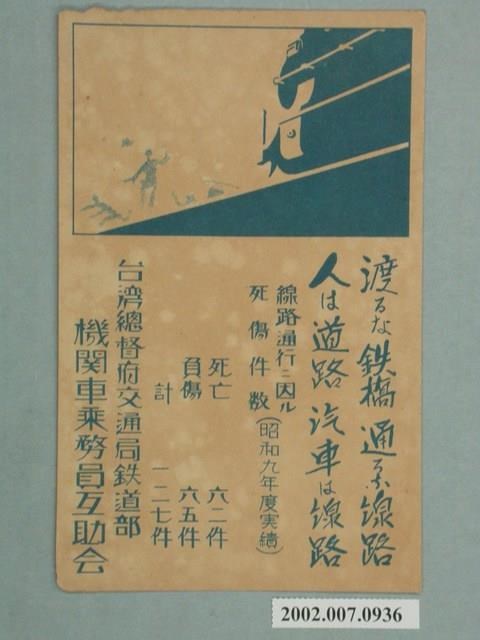 渡るな鉄橋 通るな線路
人は道路 汽車は線路
線路通行ニ因ル
死傷件数(昭和九年度実績)
死亡 六二件
負傷 六五件
計 一二七件
台湾總督府交通局鉄道部
機関車乘務員互助会
2002.007.0936